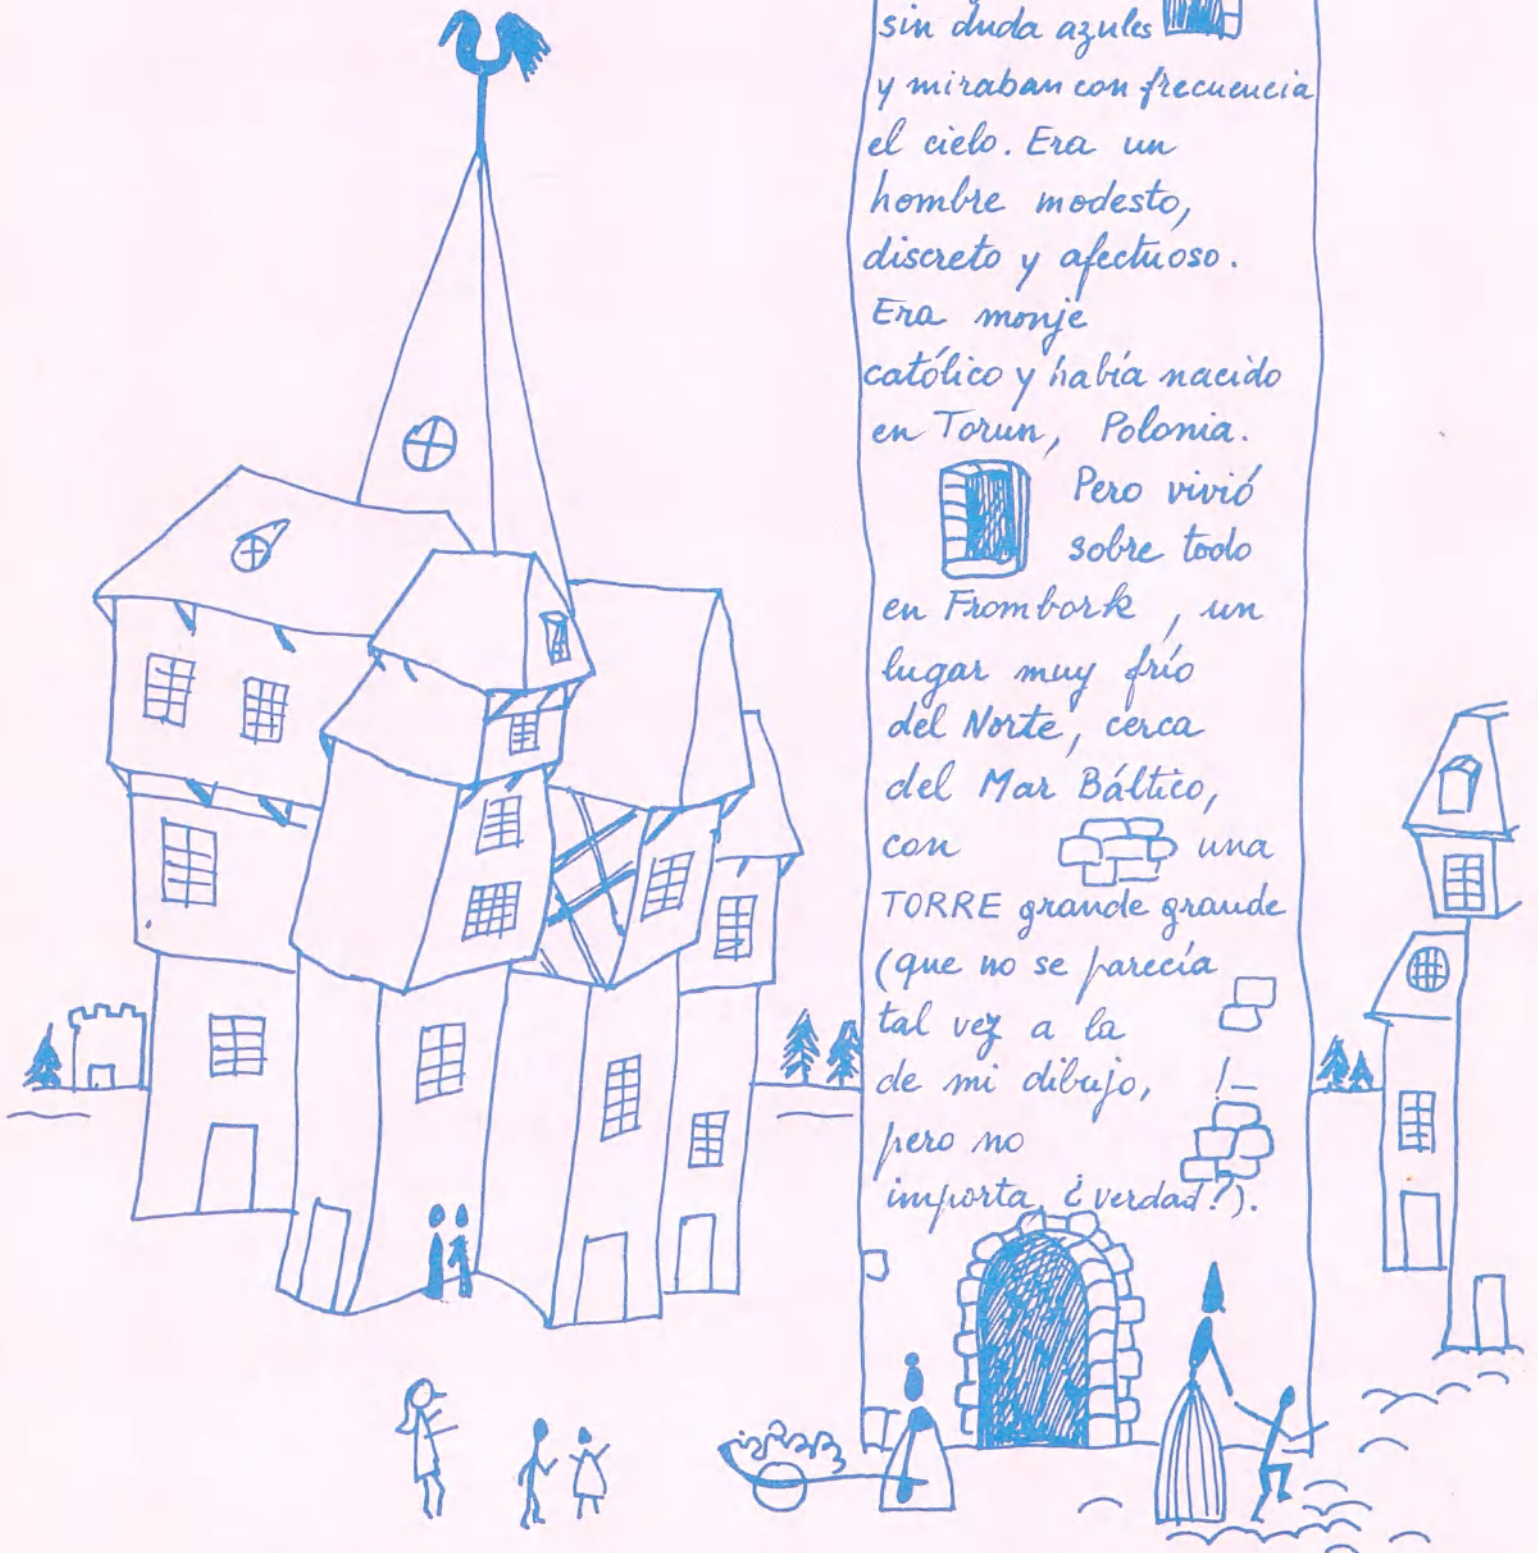 sin duda azules
y miraban con frecuencia
el cielo. Era un
hombre modesto,
discreto y afectuoso.
Era monje
católico y había nacido
en Torun, Polonia.
Pero vivió
sobre todo
en Frombork, un
lugar muy frío
del Norte, cerca
del Mar Báltico,
con una
TORRE grande grande
(que no se parecía
tal vez a la
de mi dibujo,
pero no
importa, ¿verdad?).